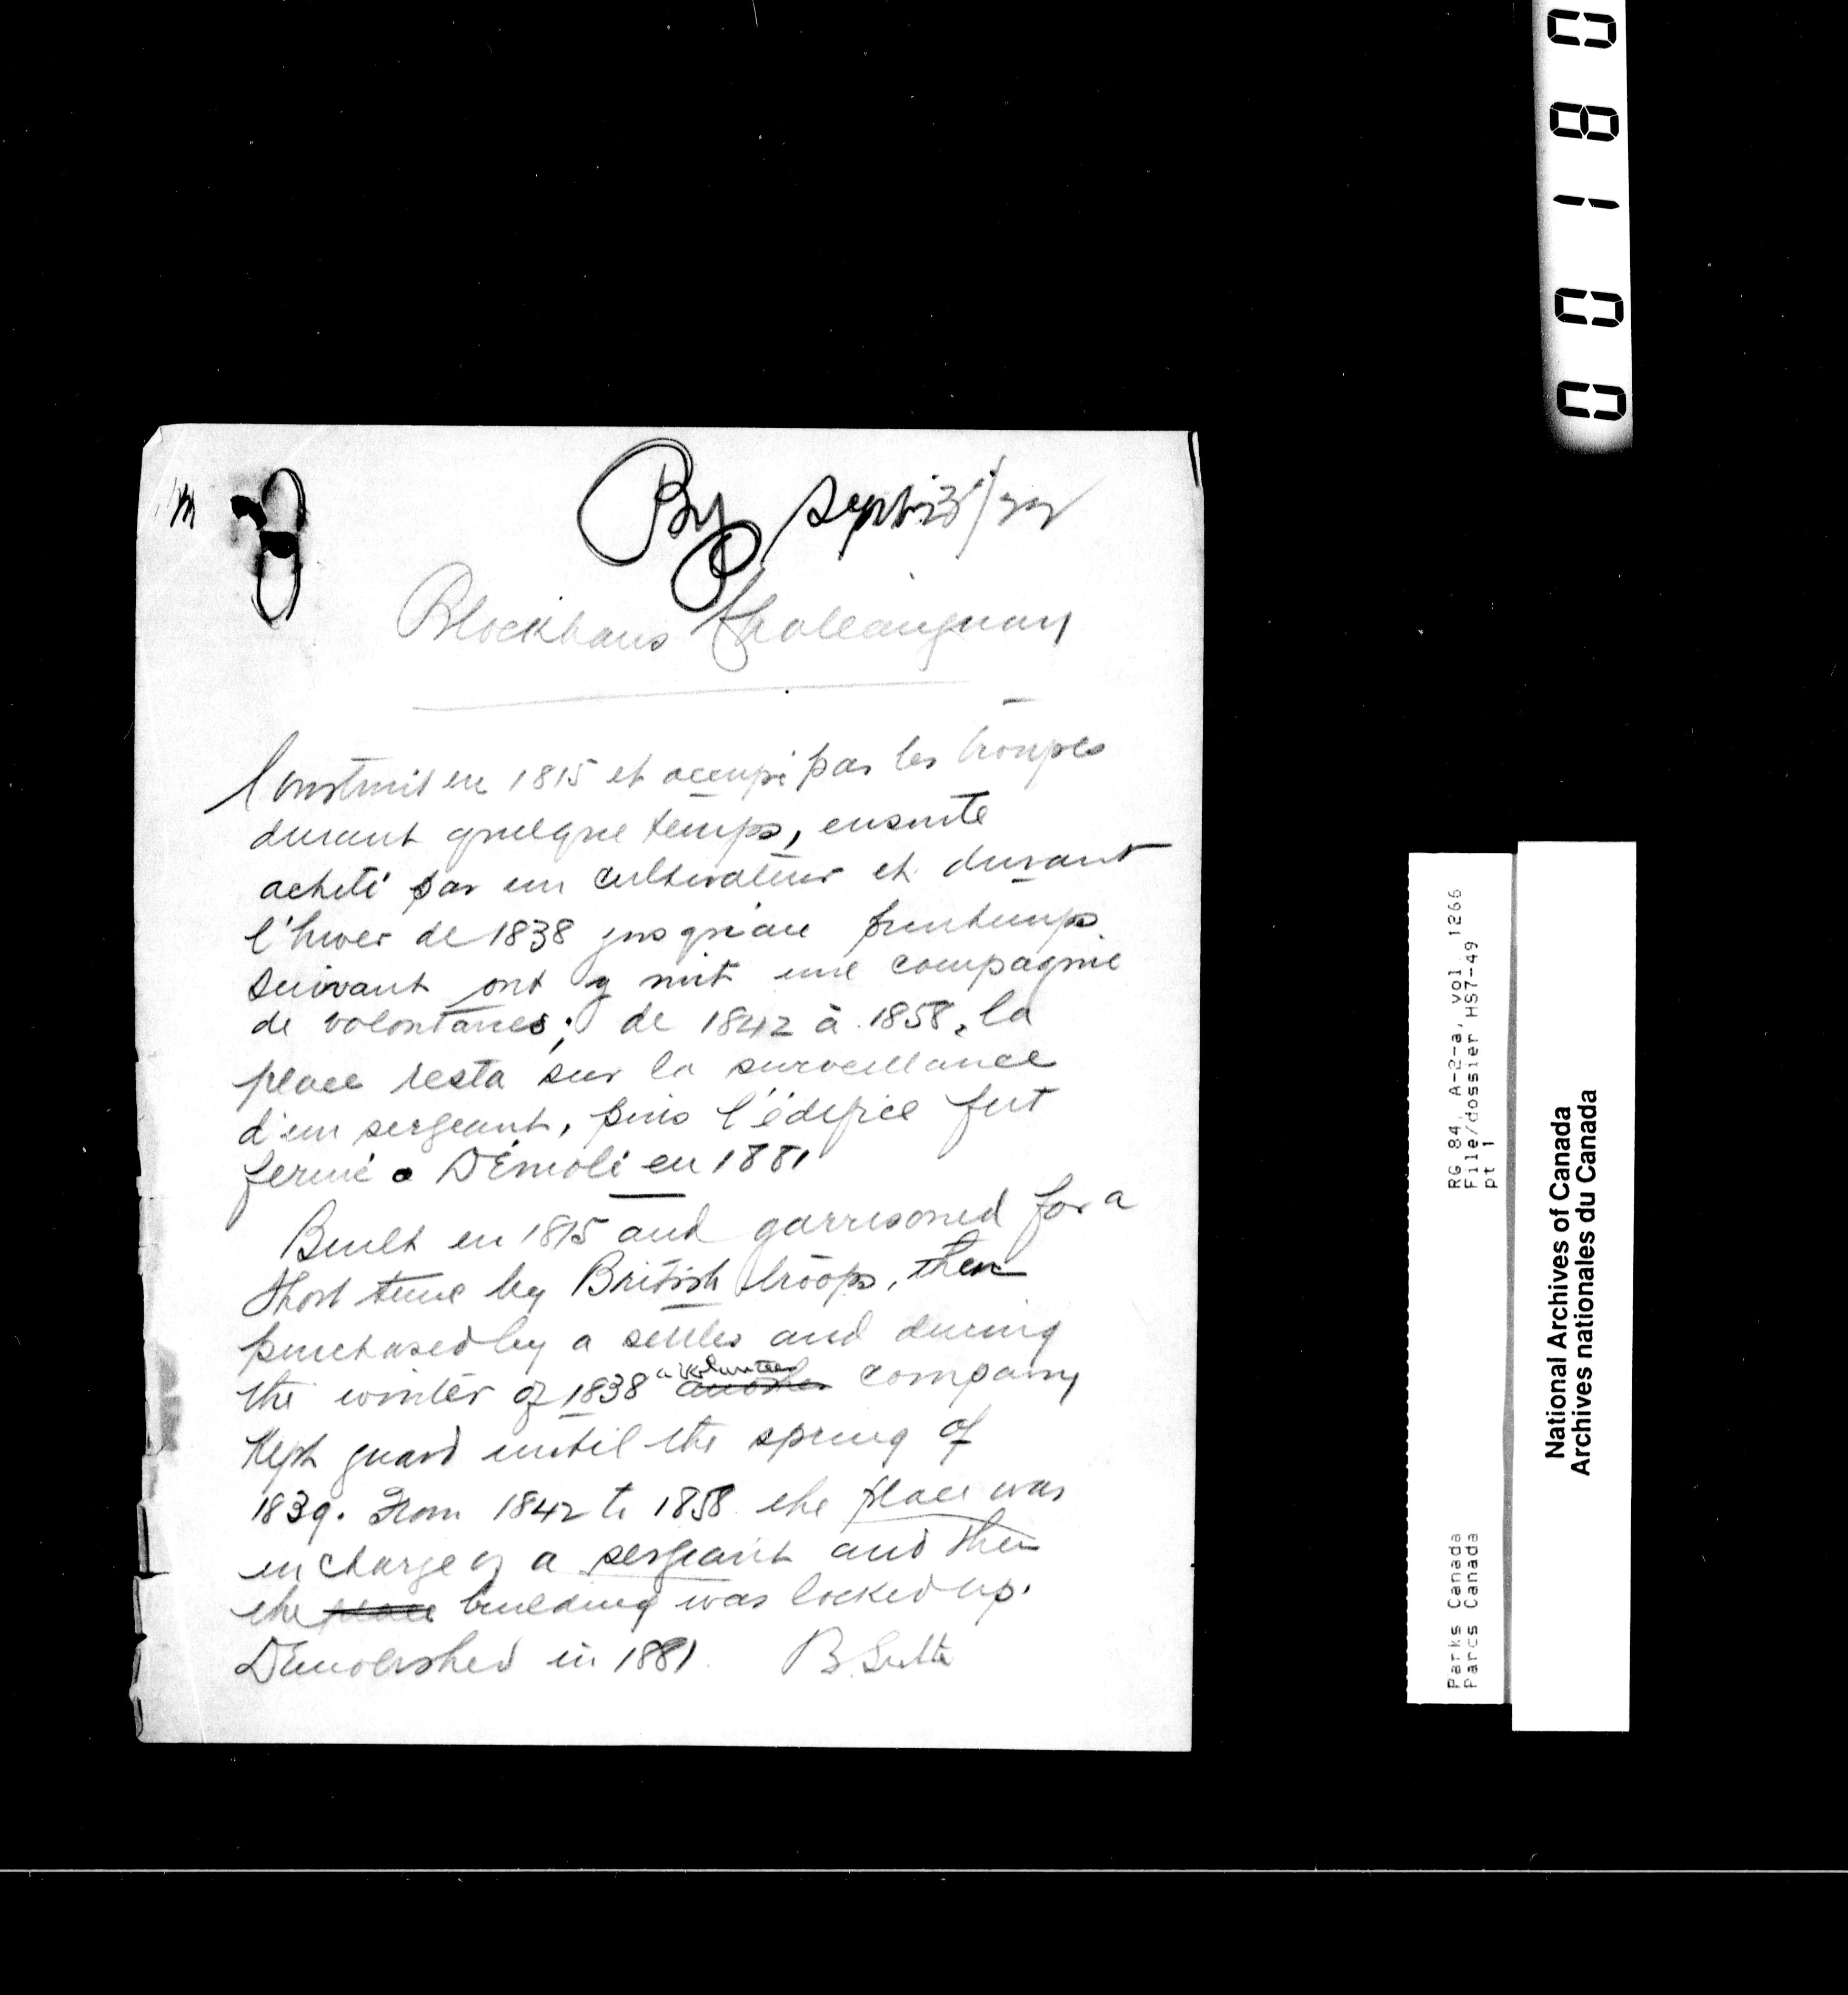 By Sept 23/22
Blockhaus Chateauguay
Construit en 1815 et occupé par les troupes
durant quelque temps, ensuite
acheté par un cultivateur et durant
l'hiver de 1838 jusqu'au printemps
suivant ont y mit une compagnie
de volontaires; de 1842 à 1858, la
place resta sur la surveillance
d'un sergeant, puis l'édifice fut
fermé. Démoli en 1881
Built en 1815 and garrisoned for a
short time by British troops, then
purchased by a settler and during
the winter of 1838 a volunteer another company
Kept guard until the spring of
1839. From 1842 to 1858 the place was
in charge of a sergeant and then
the place building was locked up.
Demolished in 1881 B. Sulte
00180
RG 84, A-2-a, vol. 1266
File/dossier HS7-49
pt 1
Parks Canada
Parcs Canada
National Archives of Canada
Archives nationales du Canada